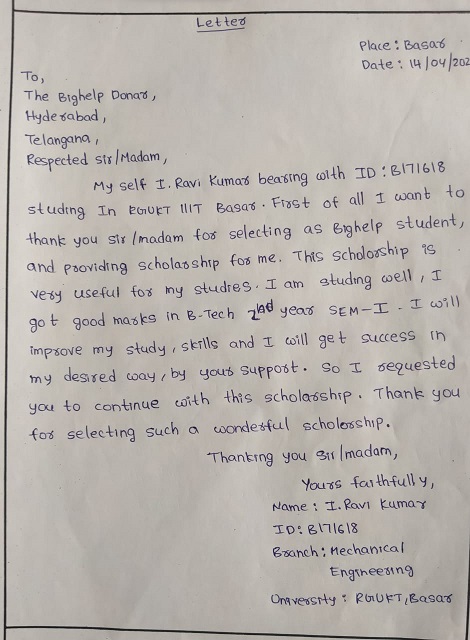 Letter
Place : Basar
Date : 14/04/202
To,
The Bighelp Donar,
Hyderabad,
Telangana,
Respected sir/Madam,
My self I. Ravi Kumar bearing with ID : B171618
studing In RGUKT IIIT Basar. First of all I want to
thank you sir/madam for selecting as Bighelp student,
and providing scholarship for me. This scholorship is
very useful for my studies. I am studing well, I
got good marks in B-Tech 2nd year SEM-I. I will
improve my study, skills and I will get success in
my desired way, by your support. So I requested
you to continue with this scholarship. Thank you
for selecting such a wonderful scholorship.
Thanking you sir/madam,
Yours faithfully,
Name : I. Ravi Kumar
ID: B171618
Branch : Mechanical
Engineering
University : RGUKT, Basar